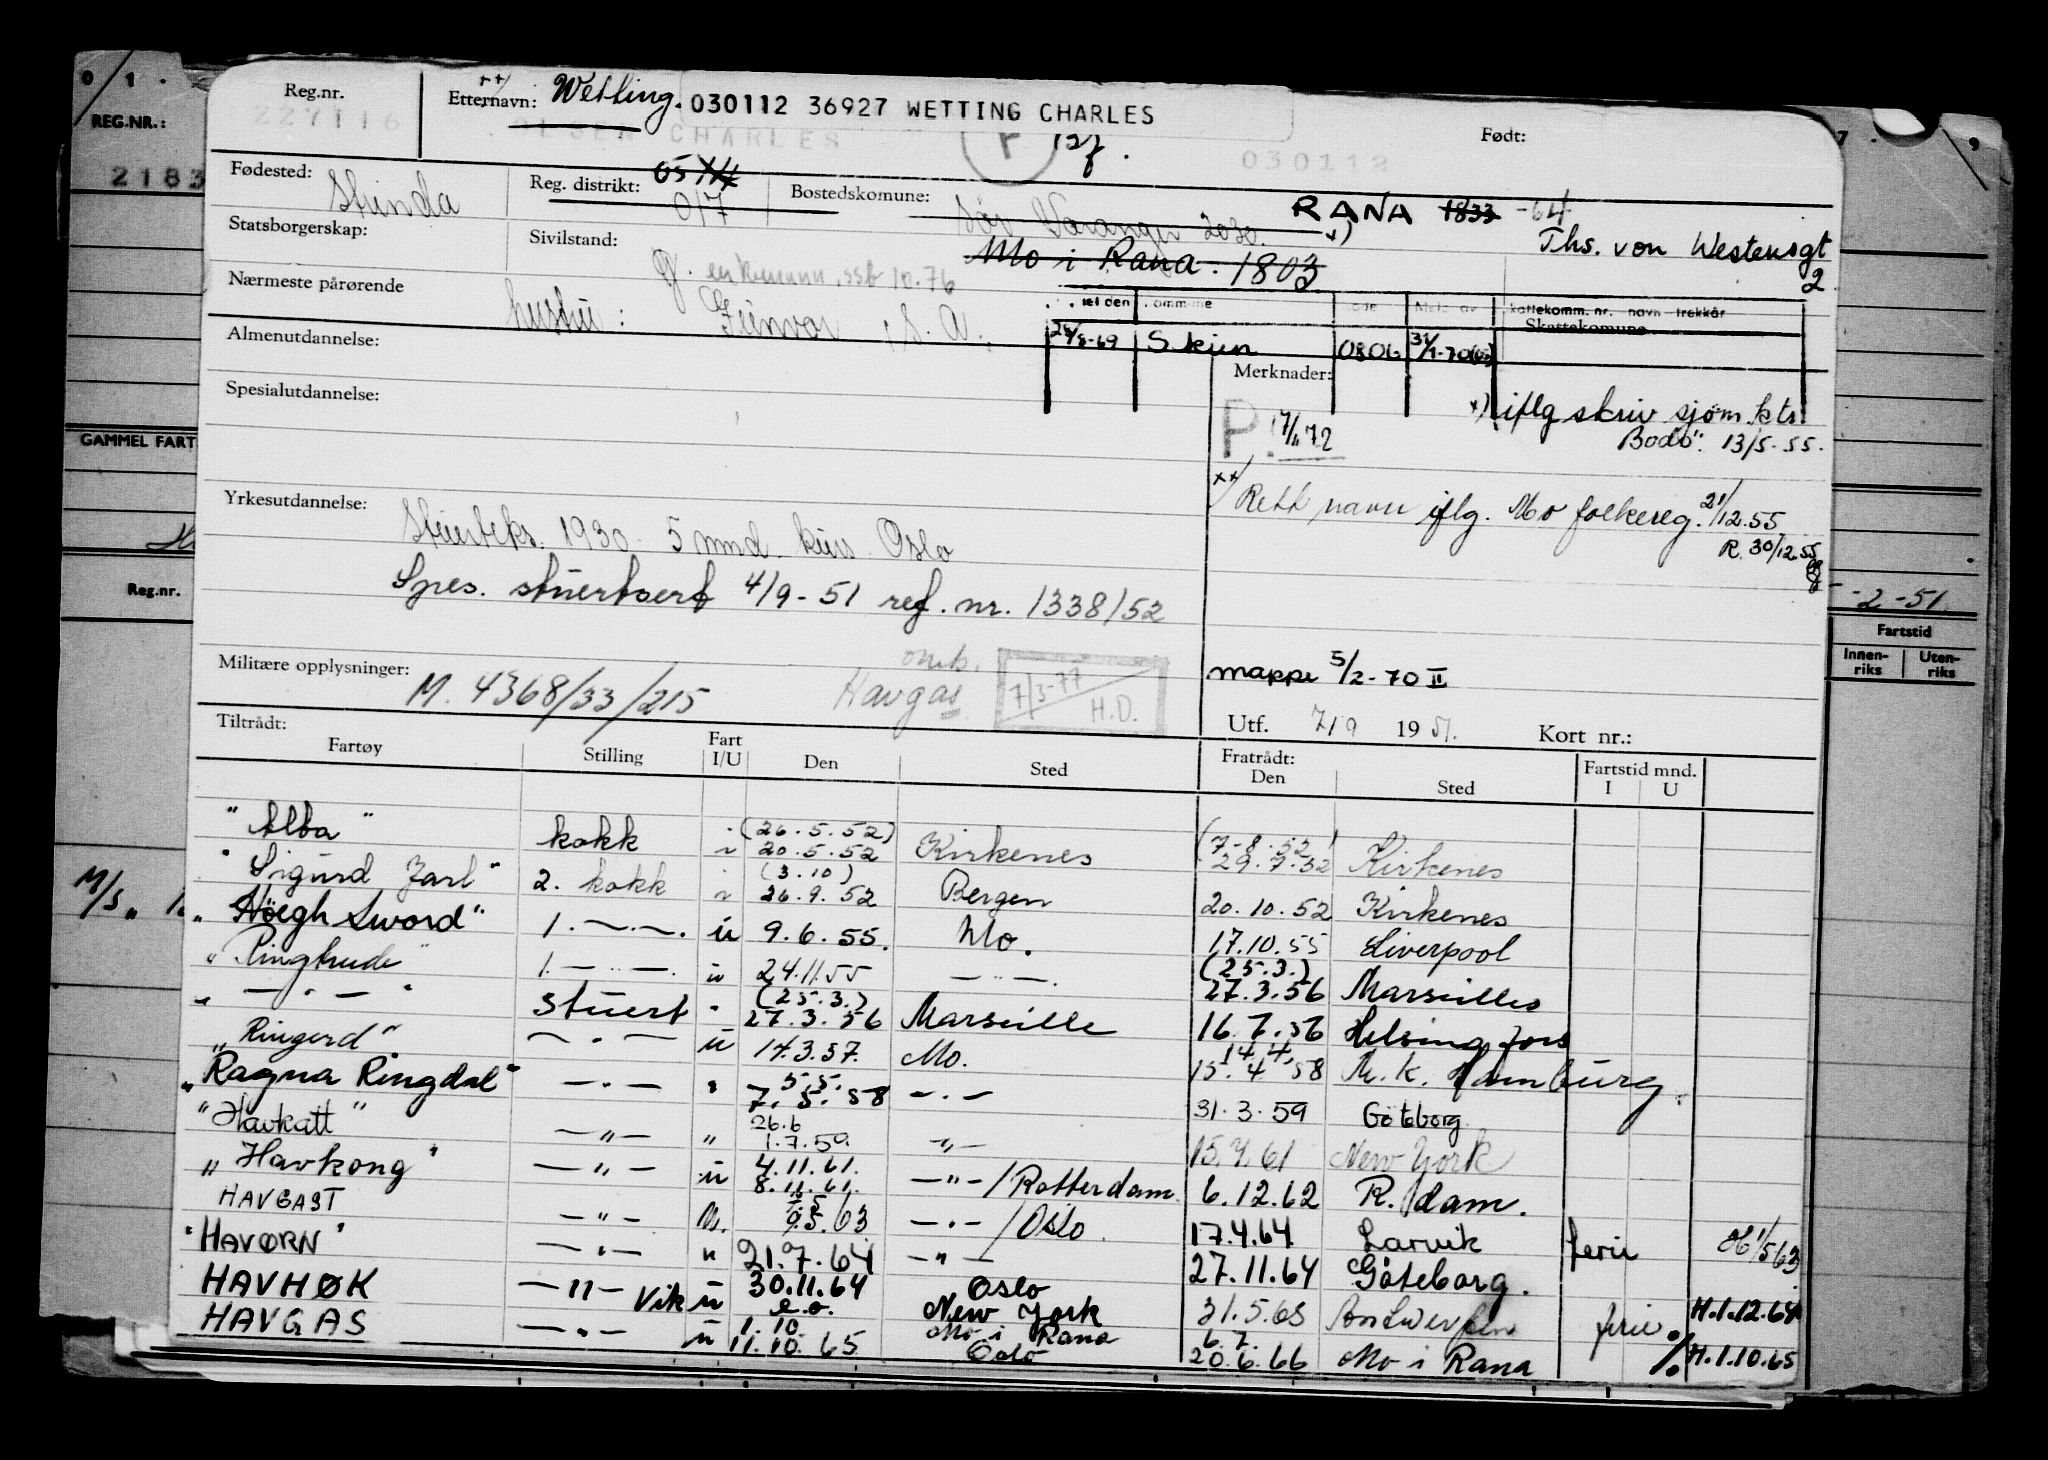 Reg.nr. Etternavn: Wetting. 030112 36927 WETTING CHARLES Født:
227116 OLSEN CHARLES 030112
REG.NR.:
2183
Fødested: Strinda Reg. distrikt: 017 Bostedskomune: Sør Varanger 2030. RANA 1833 -64
Ths. von Westensgt 2
Statsborgerskap: Sivilstand: g. enkemann, ssb 10.76 Mo i Rana. 1803
Nærmeste pårørende hustru: Gunvor, S. A.
skattekomm. nr. navn trekkår
Skattekomune
Almenutdannelse: 25/8-69 Skien 0806
Merknader:
Spesialutdannelse: x) iflg skriv sjøm.ktr.
P. 17/11 72 Bodö 13/5-55.
GAMMEL FART
Yrkesutdannelse: Stuerteks. 1930 5 mnd. kurs Oslo
xx) Rett navn iflg. Mo folkereg. 21/12.55
R. 30/12.55
Spes. stuertsert 4/9-51 ref. nr. 1338/52
Reg.nr.
-2-51
Fartstid
Innen-riks Uten-riks
Militære opplysninger: M. 4368/33/215 omb. Havgas 7/3-77 H.D. mappe 5/2-70 II
Utf. 7/9 1951. Kort nr.:
Tiltrådt: Fratrådt:
Fartøy Stilling Fart I/U Den Sted Den Sted Fartstid mnd. I U
"Alba" kokk i (26.5.52) 20.5.52 Kirkenes (7-8.52) 29.7.52 Kirkenes
"Sigurd Jarl" 2. kokk i (3.10) 26.9.52 Bergen 20.10.52 Kirkenes
M/S "
"Höegh Sword" 1. —.—. u 9.6.55. Mo. 17.10.55 Liverpool
"Ringhude" 1. —..—. u 24.11.55 —..—. (25.3.) 27.3.56 Marseilles
" — " — " stuert " (25.3.) 27.3.56 Marseille 16.7.56 Helsingfors
"Ringerd" — . — u 14.3.57. Mo. 14.4. 15.4.58 M.k. Hamburg.
"Ragna Ringdal" — . — " 5.5. 7.5.58 — . — 31.3.59 Göteborg.
"Havkatt" — " — " 26.6 1.7.59. — " — 15.4.61 New York
"Havkong" — " — u 4.11.61. 8.11.61. — " —/Rotterdam 6.12.62 R.dam.
HAVGAST — " — u. 9.5.63 — . —/Oslo 17.4.64 Larvik ferie
"HAVØRN" — " — u 21.7.64 — " — 27.11.64 Göteborg.
HAVHØK — " — Vik u 30.11.64 e.o. Oslo New York 31.5.65 Antwerpen ferie H.1.12.64
HAVGAS — " — u 1.10 11.10.65 Mo i Rana Oslo 6.7. 20.6.66 Mo i Rana % H.1.10.65